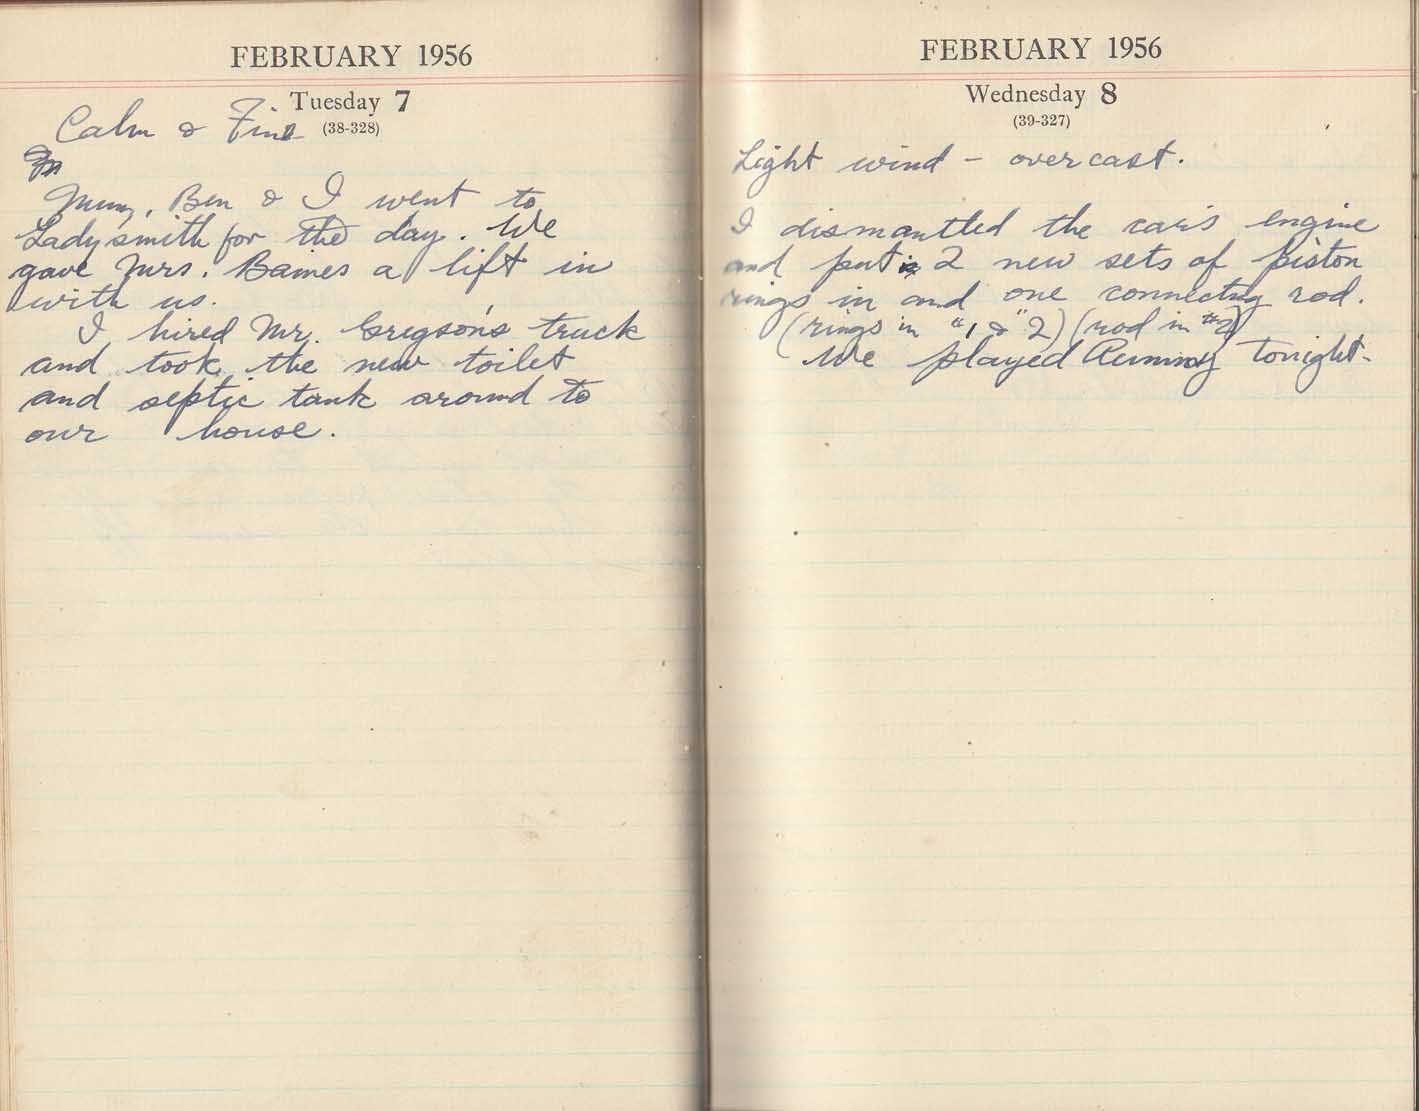 FEBRUARY 1956
Tuesday 7
(38-328)
Calm & Fine
Mum, Ben & I went to
Ladysmith for the day. We
gave Mrs. Baines a lift in
with us.
I hired Mr. Gregson's truck
and took the new toilet
and septic tank around to
our house.
FEBRUARY 1956
Wednesday 8
(39-327)
Light wind - overcast.
I dismantled the car's engine
and put 2 new sets of piston
rings in and one connecting rod.
(rings in "1 & "2) (rod in #2)
We played Rummy tonight.